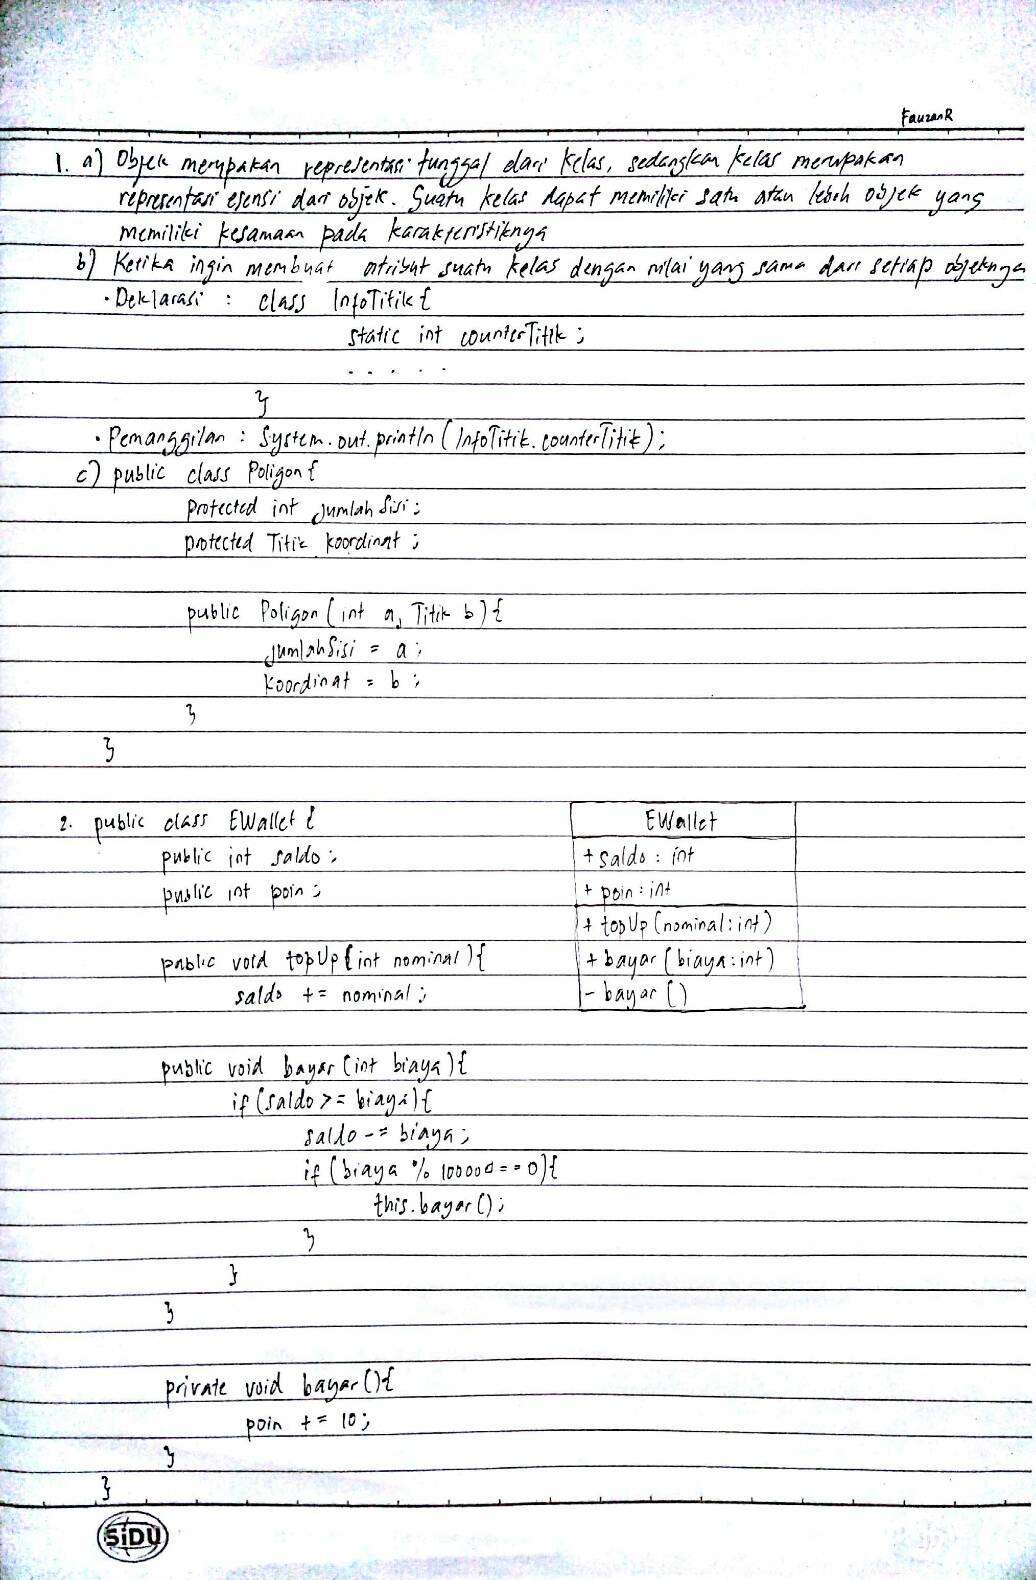 FauzanR
1. a) Objek merupakan representasi tunggal dari kelas, sedangkan kelas merupakan
representasi esensi dari objek. Suatu kelas dapat memiliki satu atau lebih objek yang
memiliki kesamaan pada karakteristiknya
b) Ketika ingin membuat atribut suatu kelas dengan nilai yang sama dari setiap objeknya
• Deklarasi : class InfoTitik {
static int counterTitik ;
. . . . .
}
• Pemanggilan : System.out.println ( InfoTitik.counterTitik ) ;
c) public class Poligon {
protected int jumlahSisi ;
protected Titik koordinat ;
public Poligon ( int a, Titik b ) {
jumlahSisi = a ;
koordinat = b ;
}
}
2. public class EWallet {
public int saldo ;
public int poin ;
public void topUp ( int nominal ) {
saldo += nominal ;
public void bayar ( int biaya ) {
if ( saldo >= biaya ) {
saldo -= biaya ;
if ( biaya % 100000 == 0 ) {
this.bayar () ;
}
}
}
private void bayar () {
poin += 10 ;
}
}
EWallet
+ saldo : int
+ poin : int
+ topUp ( nominal : int )
+ bayar ( biaya : int )
- bayar ( )
SiDU